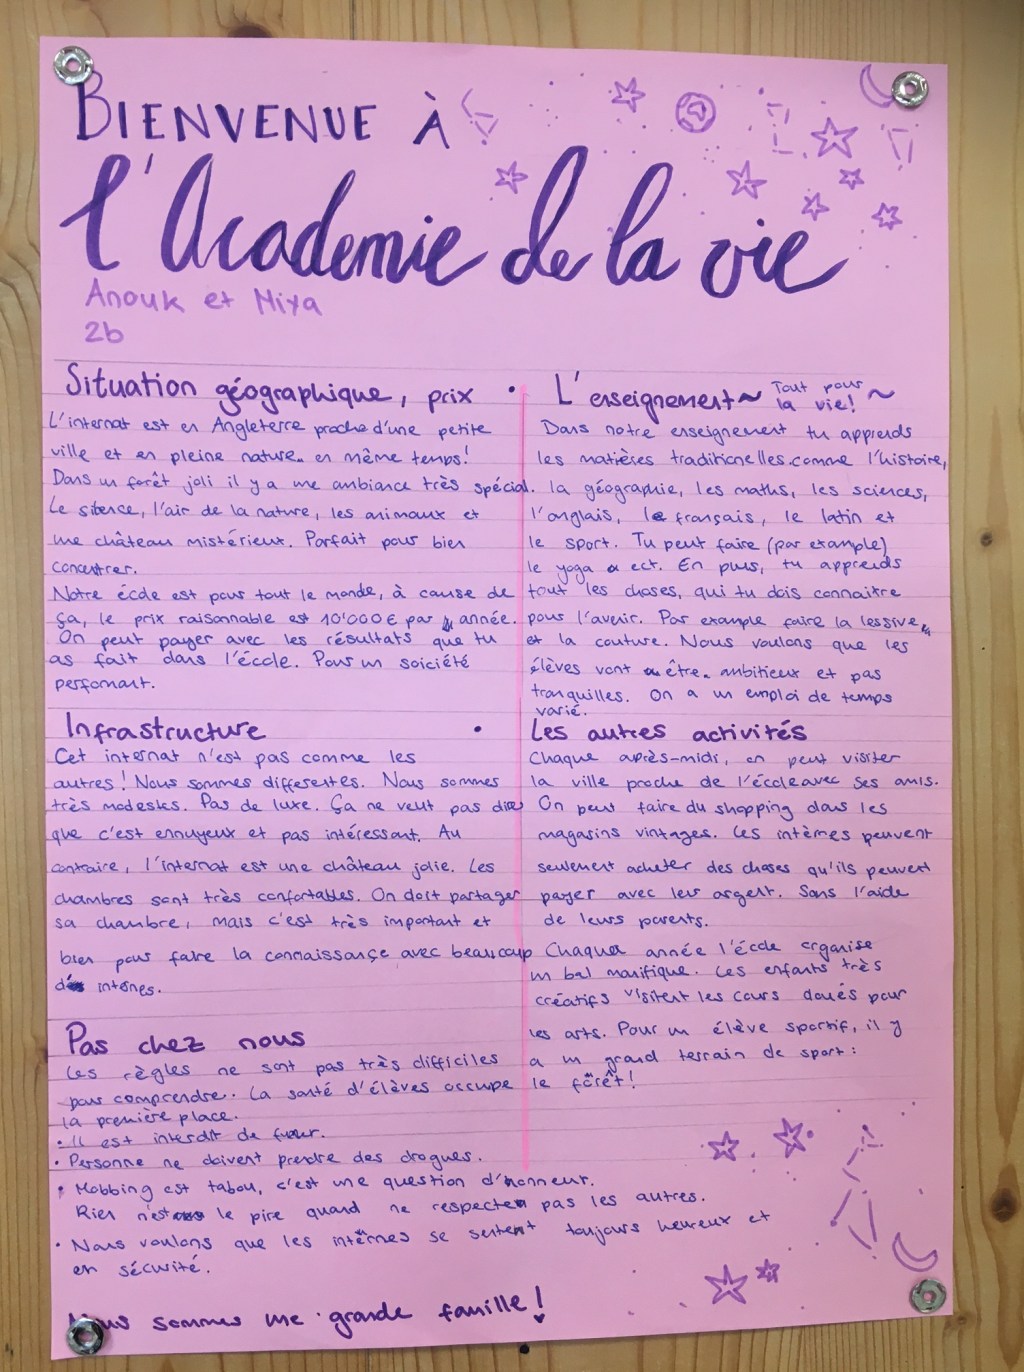 BIENVENUE À
l'Academie de la vie
Anouk et Miya
2b
Situation géographique, prix
L'internat est en Angleterre proche d'une petite
ville et en pleine nature en même temps!
Dans un forêt joli il y a une ambiance très spécial.
Le silence, l'air de la nature, les animaux et
une château mistérieux. Parfait pour bien
concentrer.
Notre école est pour tout le monde, à cause de
ça, le prix raisonnable est 10'000€ par année.
On peut payer avec les résultats que tu
as fait dans l'école. Pour un soiciété
perfomant.
Infrastructure
Cet internat n'est pas comme les
autres! Nous sommes differentes. Nous sommes
très modestes. Pas de luxe. Ça ne veut pas dire
que c'est ennuyeux et pas intéressant. Au
contraire, l'internat est une château jolie. Les
chambres sont très confortables. On doit partager
sa chambre, mais c'est très important et
bien pour faire la connaissance avec beaucoup
des internes.
Pas chez nous
Les règles ne sont pas très difficiles
pour comprendre. La santé d'élèves occupe
la première place.
• Il est interdit de fumer.
• Personne ne doivent prendre des drogues.
• Mobbing est tabou, c'est une question d'honneur.
Rien n'est le pire quand ne respecten pas les autres.
• Nous voulons que les internes se sentent toujours heureux et
en sécurité.
Nous sommes une grande famille!
L'enseignement ~ Tout pour
la vie! ~
Dans notre enseignement tu apprends
les matières traditionelles comme l'histoire,
la géographie, les maths, les sciences,
l'anglais, le français, le latin et
le sport. Tu peut faire (par example)
le yoga ect. En plus, tu apprends
tout les choses, qui tu dois connaitre
pour l'avenir. Par example faire la lessive
et la couture. Nous voulons que les
élèves vont être ambitieux et pas
tranquilles. On a un emploi de temps
varié.
Les autres activités
Chaque après-midi, on peut visiter
la ville proche de l'école avec ses amis.
On peut faire du shopping dans les
magasins vintages. Les internes peuvent
seulement acheter des choses qu'ils peuvent
payer avec leur argent. Sans l'aide
de leurs parents.
Chaque année l'école organise
un bal manifique. Les enfants très
créatifs visitent les cours doués pour
les arts. Pour un élève sportif, il y
a un grand terrain de sport:
le forêt!